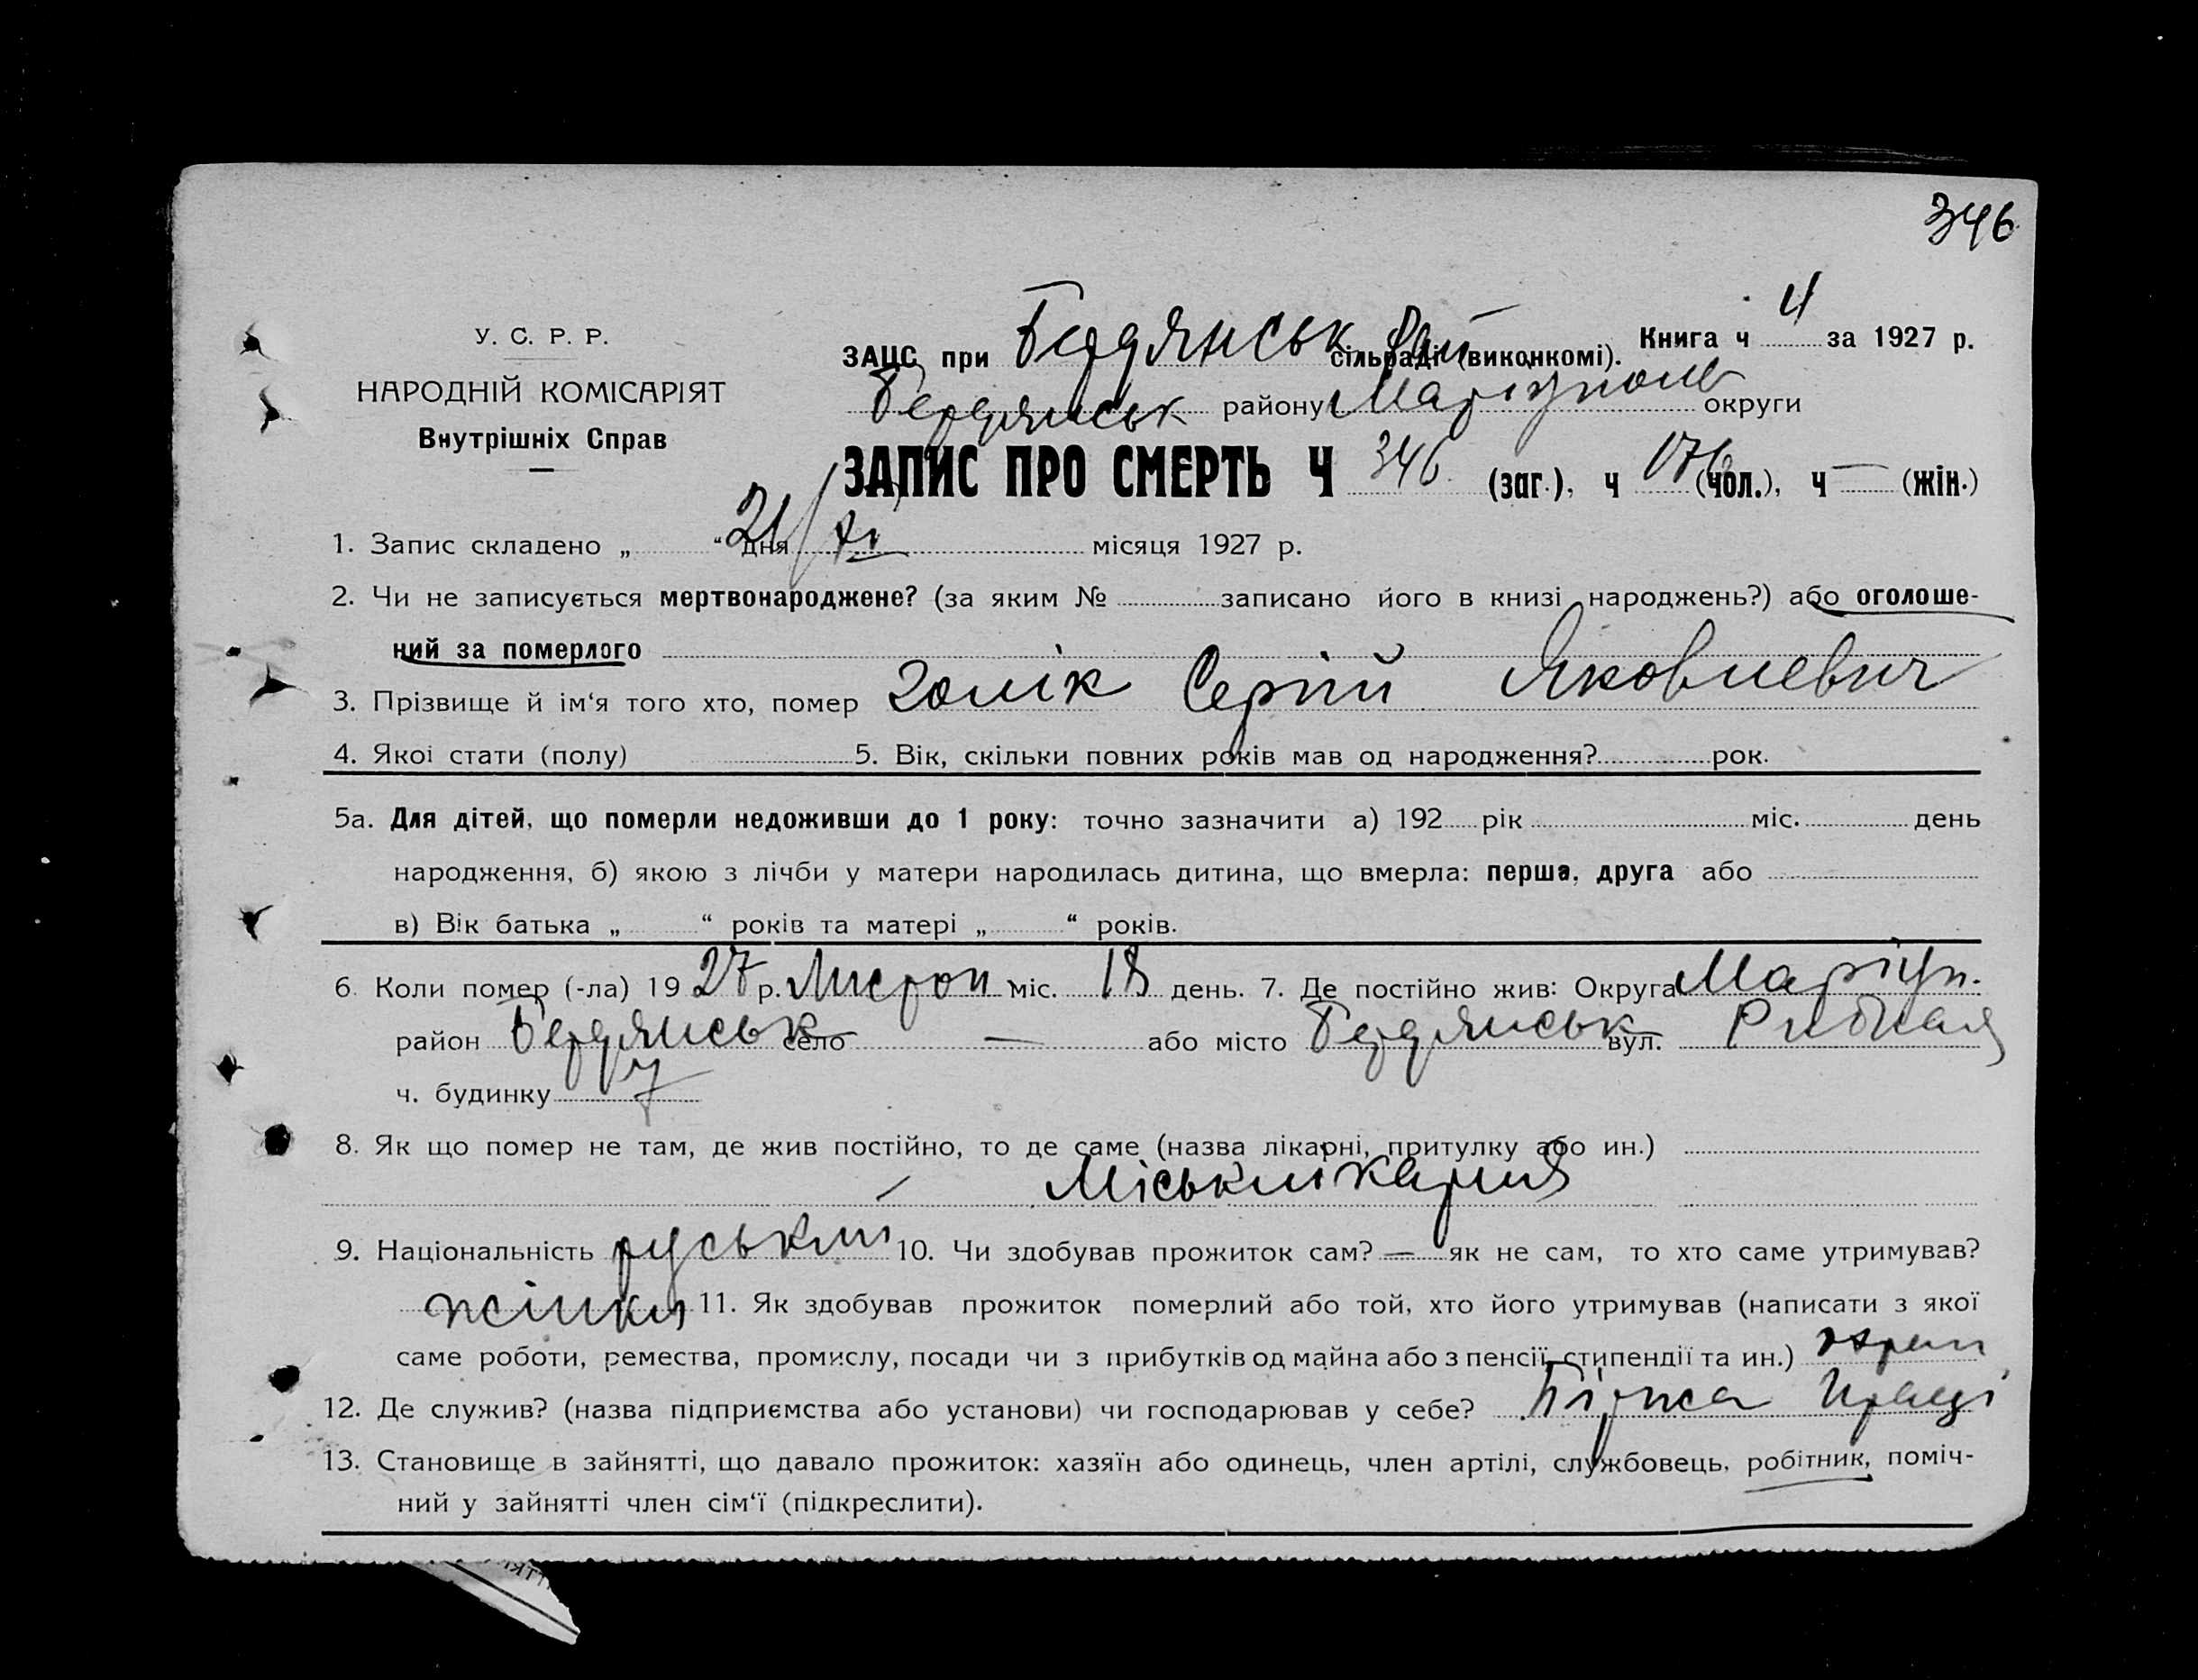 346
У. С. Р. Р.
НАРОДНІЙ КОМІСАРІЯТ
Внутрішніх Справ
Книга ч 4 за 1927 р.
ЗАЦС при Бердянськ Рай сільраді (виконкомі).
Бердянськ району Маріуполь округи
ЗАПИС ПРО СМЕРТЬ Ч 346 (заг.), ч 176 (чол.), ч — (жін.)
1. Запис складено „ “ дня 21/XI місяця 1927 р.
2. Чи не записується мертвонароджене? (за яким № записано його в книзі народжень?) або оголоше-
ний за померлого
3. Прізвище й ім‘я того хто, помер Голік Сергій Яковлевич
4. Якоі стати (полу) 5. Вік, скільки повних років мав од народження? рок.
5а. Для дітей, що померли недоживши до 1 року: точно зазначити а) 192 рік міс. день
народження, б) якою з лічби у матери народилась дитина, що вмерла: перша, друга або
в) Вік батька „ “ років та матері „ “ років.
6. Коли помер (-ла) 1927 р. Листоп міс. 18 день. 7. Де постійно жив: Округа Маріуп.
район Бердянськ село — або місто Бердянськ вул. Рибная
ч. будинку 7
8. Як що помер не там, де жив постійно, то де саме (назва лікарні, притулку або ин.)
Міськлікарня
9. Національність руський 10. Чи здобував прожиток сам? — як не сам, то хто саме утримував?
жінка 11. Як здобував прожиток померлий або той, хто його утримував (написати з якої
саме роботи, ремества, промислу, посади чи з прибутків од майна або з пенсії, стипендії та ин.)
12. Де служив? (назва підприємства або установи) чи господарював у себе? Біржа Праці
13. Становище в зайнятті, що давало прожиток: хазяїн або одинець, член артілі, службовець, робітник, поміч-
ний у зайнятті член сім‘ї (підкреслити).